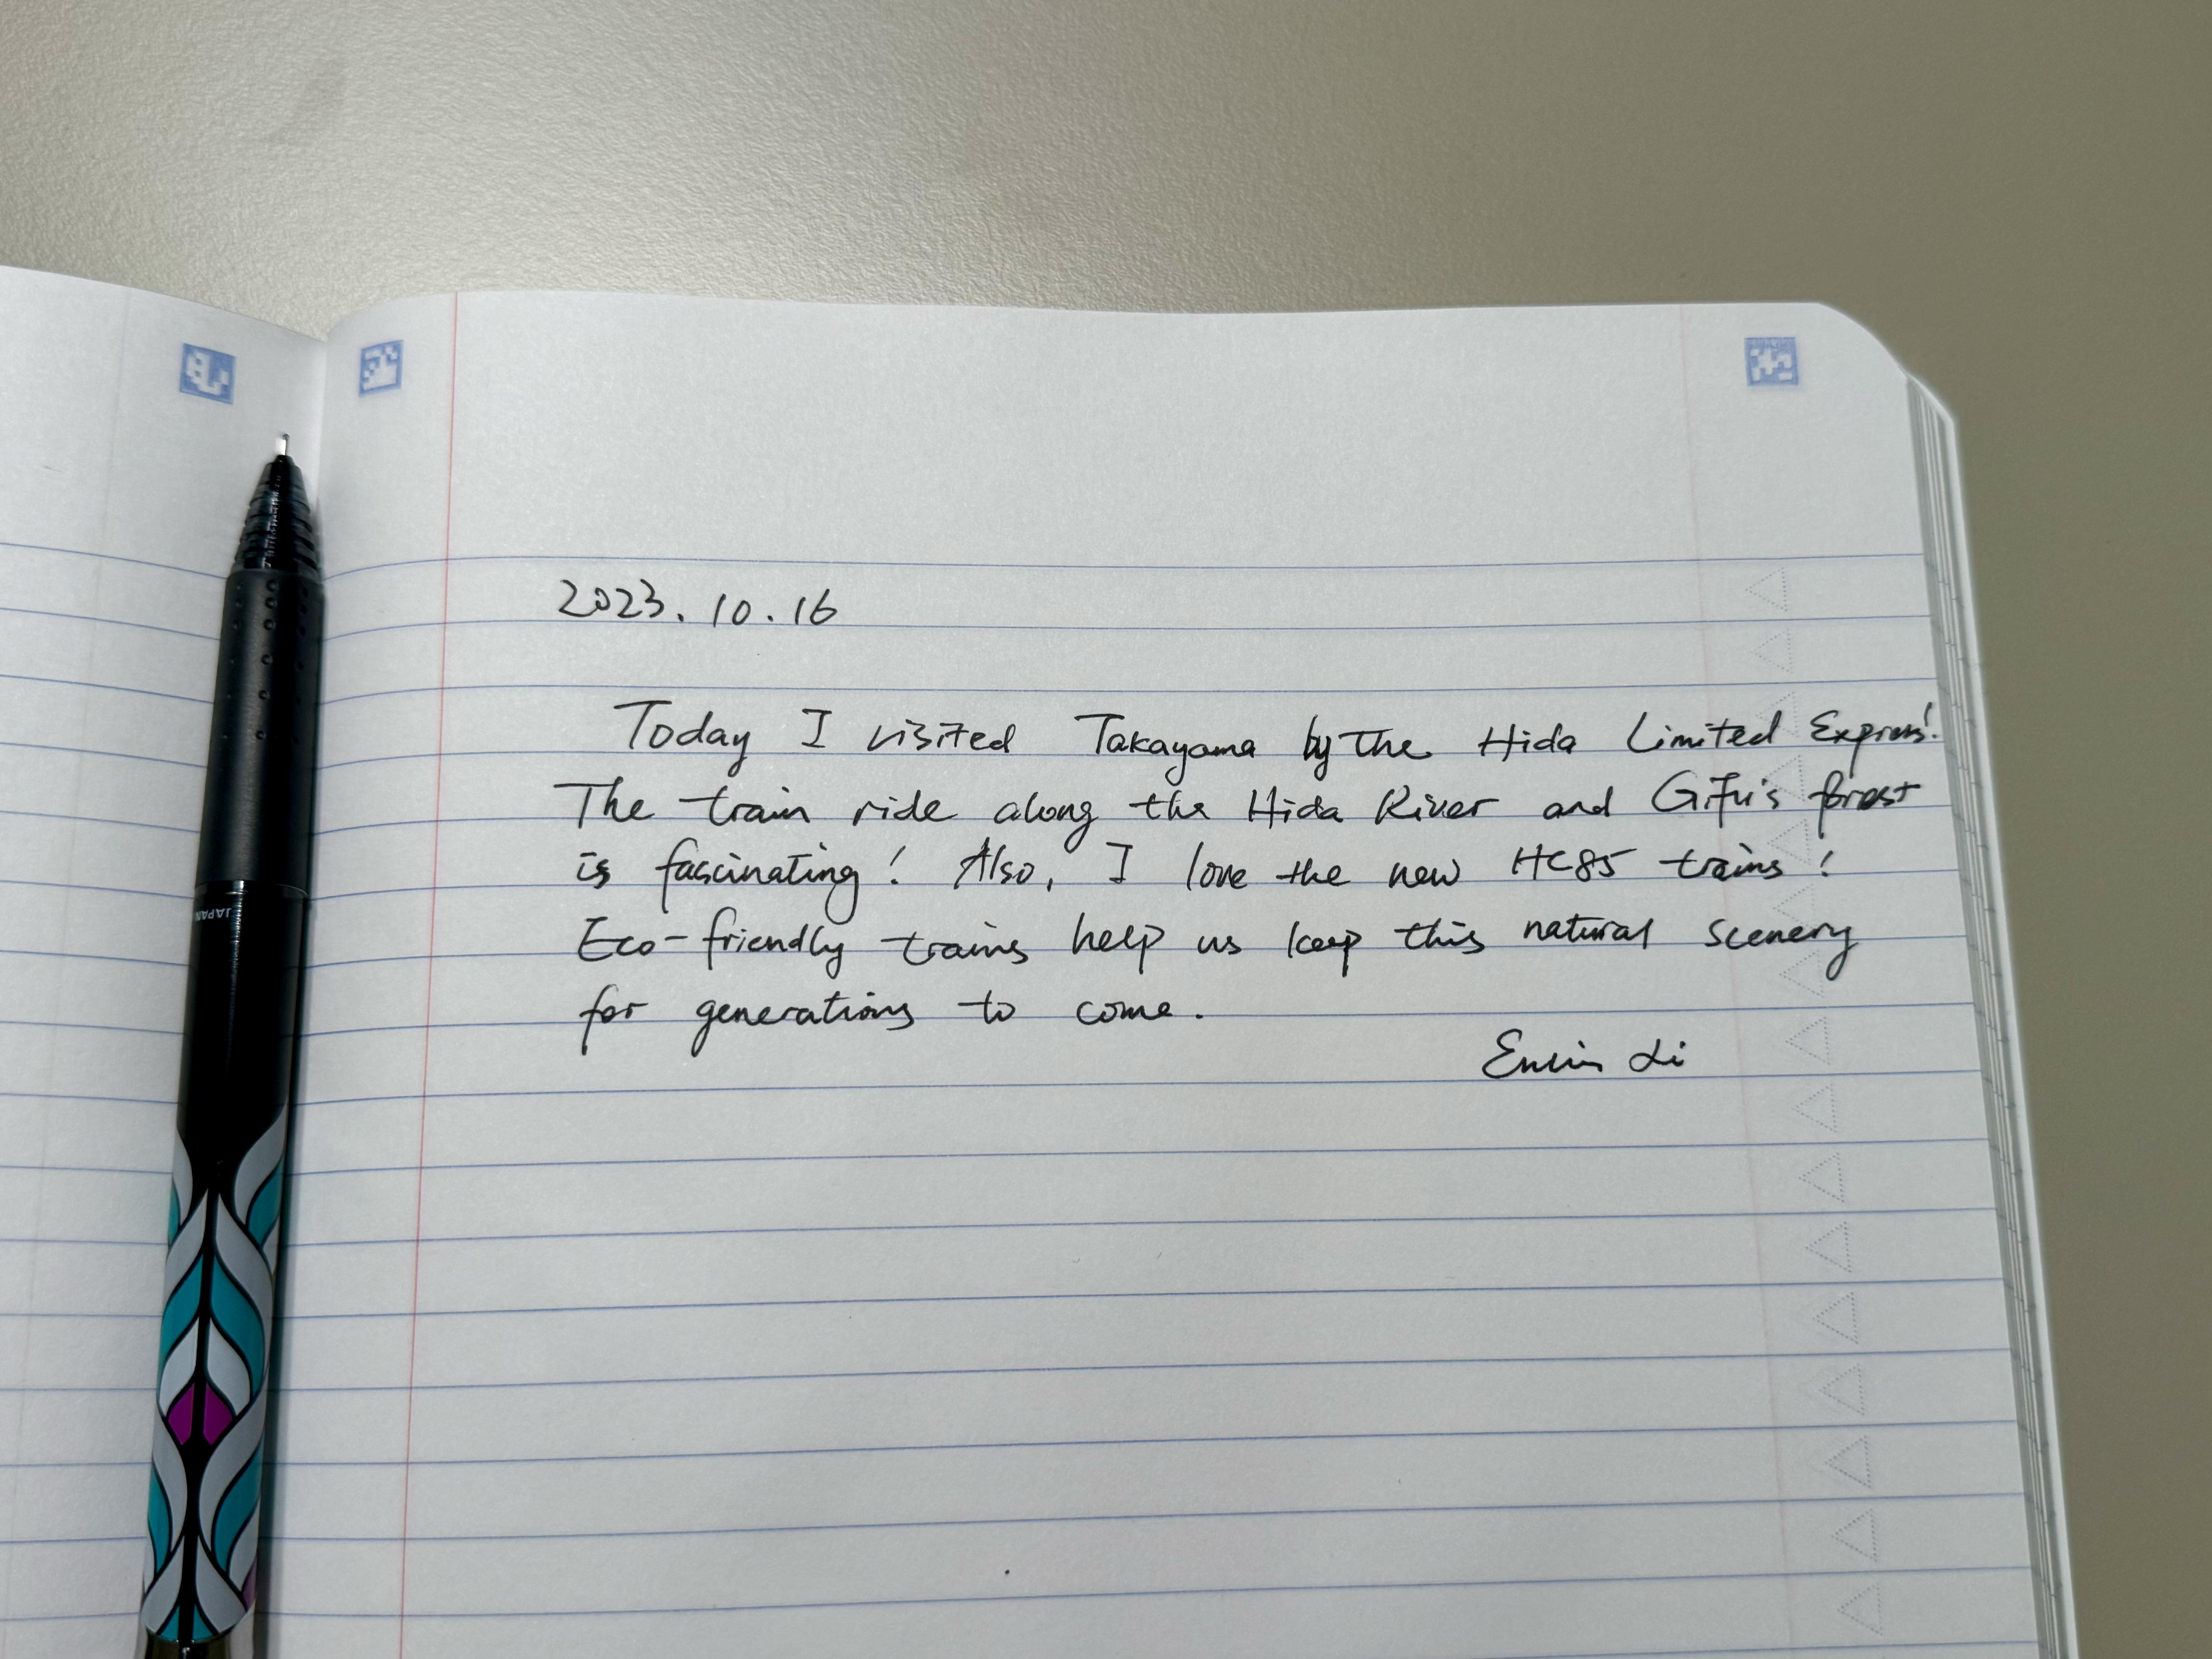 2023.10.16
Today I visited Takayama by the Hida Limited Express!
The train ride along the Hida River and Gifu's forest
is fascinating! Also, I love the new HC85 trains!
Eco-friendly trains help us keep this natural scenery
for generations to come.
Li
JAPAN